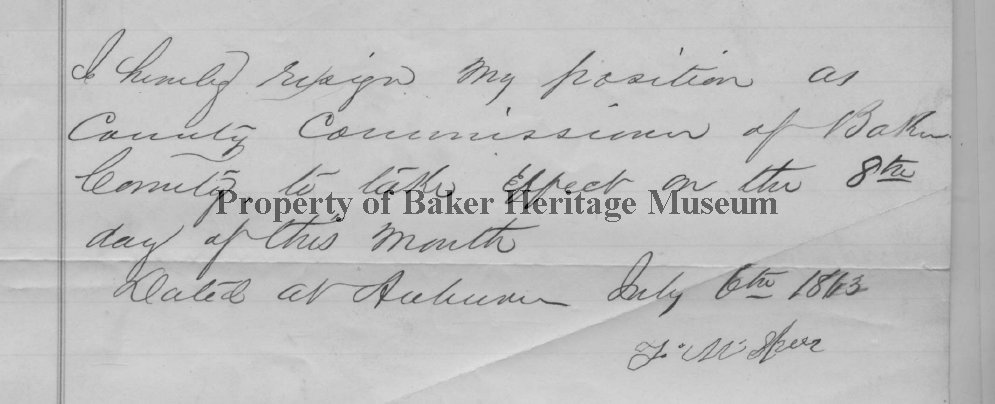 I hereby resign my position as
County Commissioner of Baker
County, to take Effect on the 8th
Property of Baker Heritage Museum
day of this month
Dated at Auburn July 6th 1863
F. M.